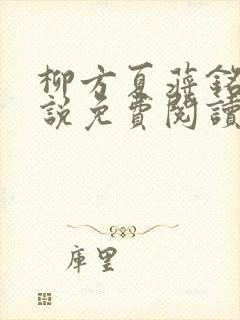 柳方夏蔣銘
說免費閱讀
庫里